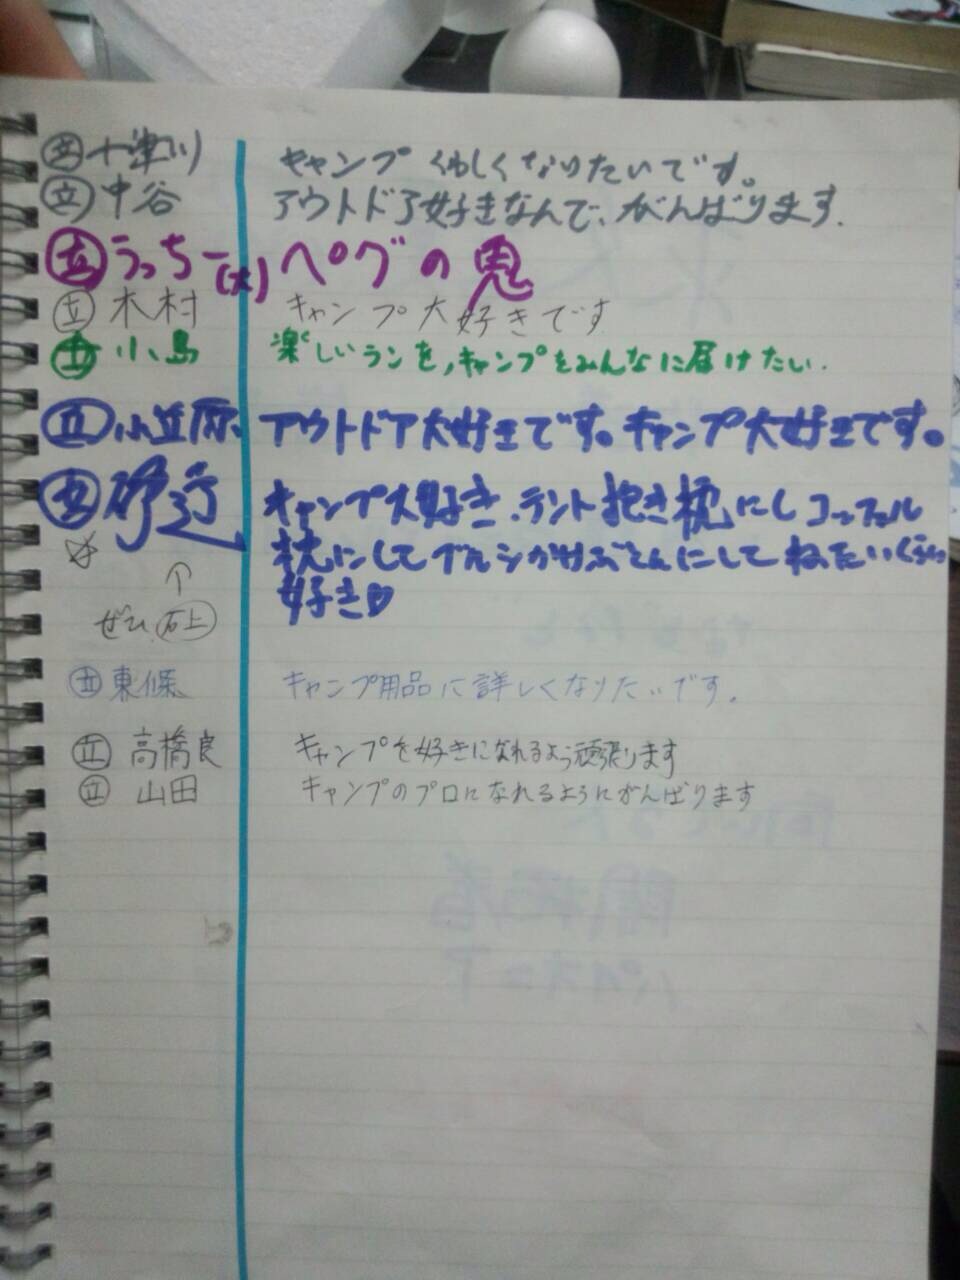 立 十津川 キャンプくわしくなりたいです。
立 中谷 アウトドア好きなんで、がんばります.
立 うっちー(大) ペグの鬼
立 木村 キャンプ大好きです
立 小島 楽しいランを,キャンプをみんなに届けたい.
立 小笠原 アウトドア大好きです。キャンプ大好きです。
立 キャンプ大好き.テント抱き枕にしコッフェル
枕にしてブルシかけぶとんにしてねたいくらい
好き♡
↑
ぜひ
立 東條 キャンプ用品に詳しくなりたいです.
立 高橋良 キャンプを好きになれるよう頑張ります
立 山田 キャンプのプロになれるようにがんばります